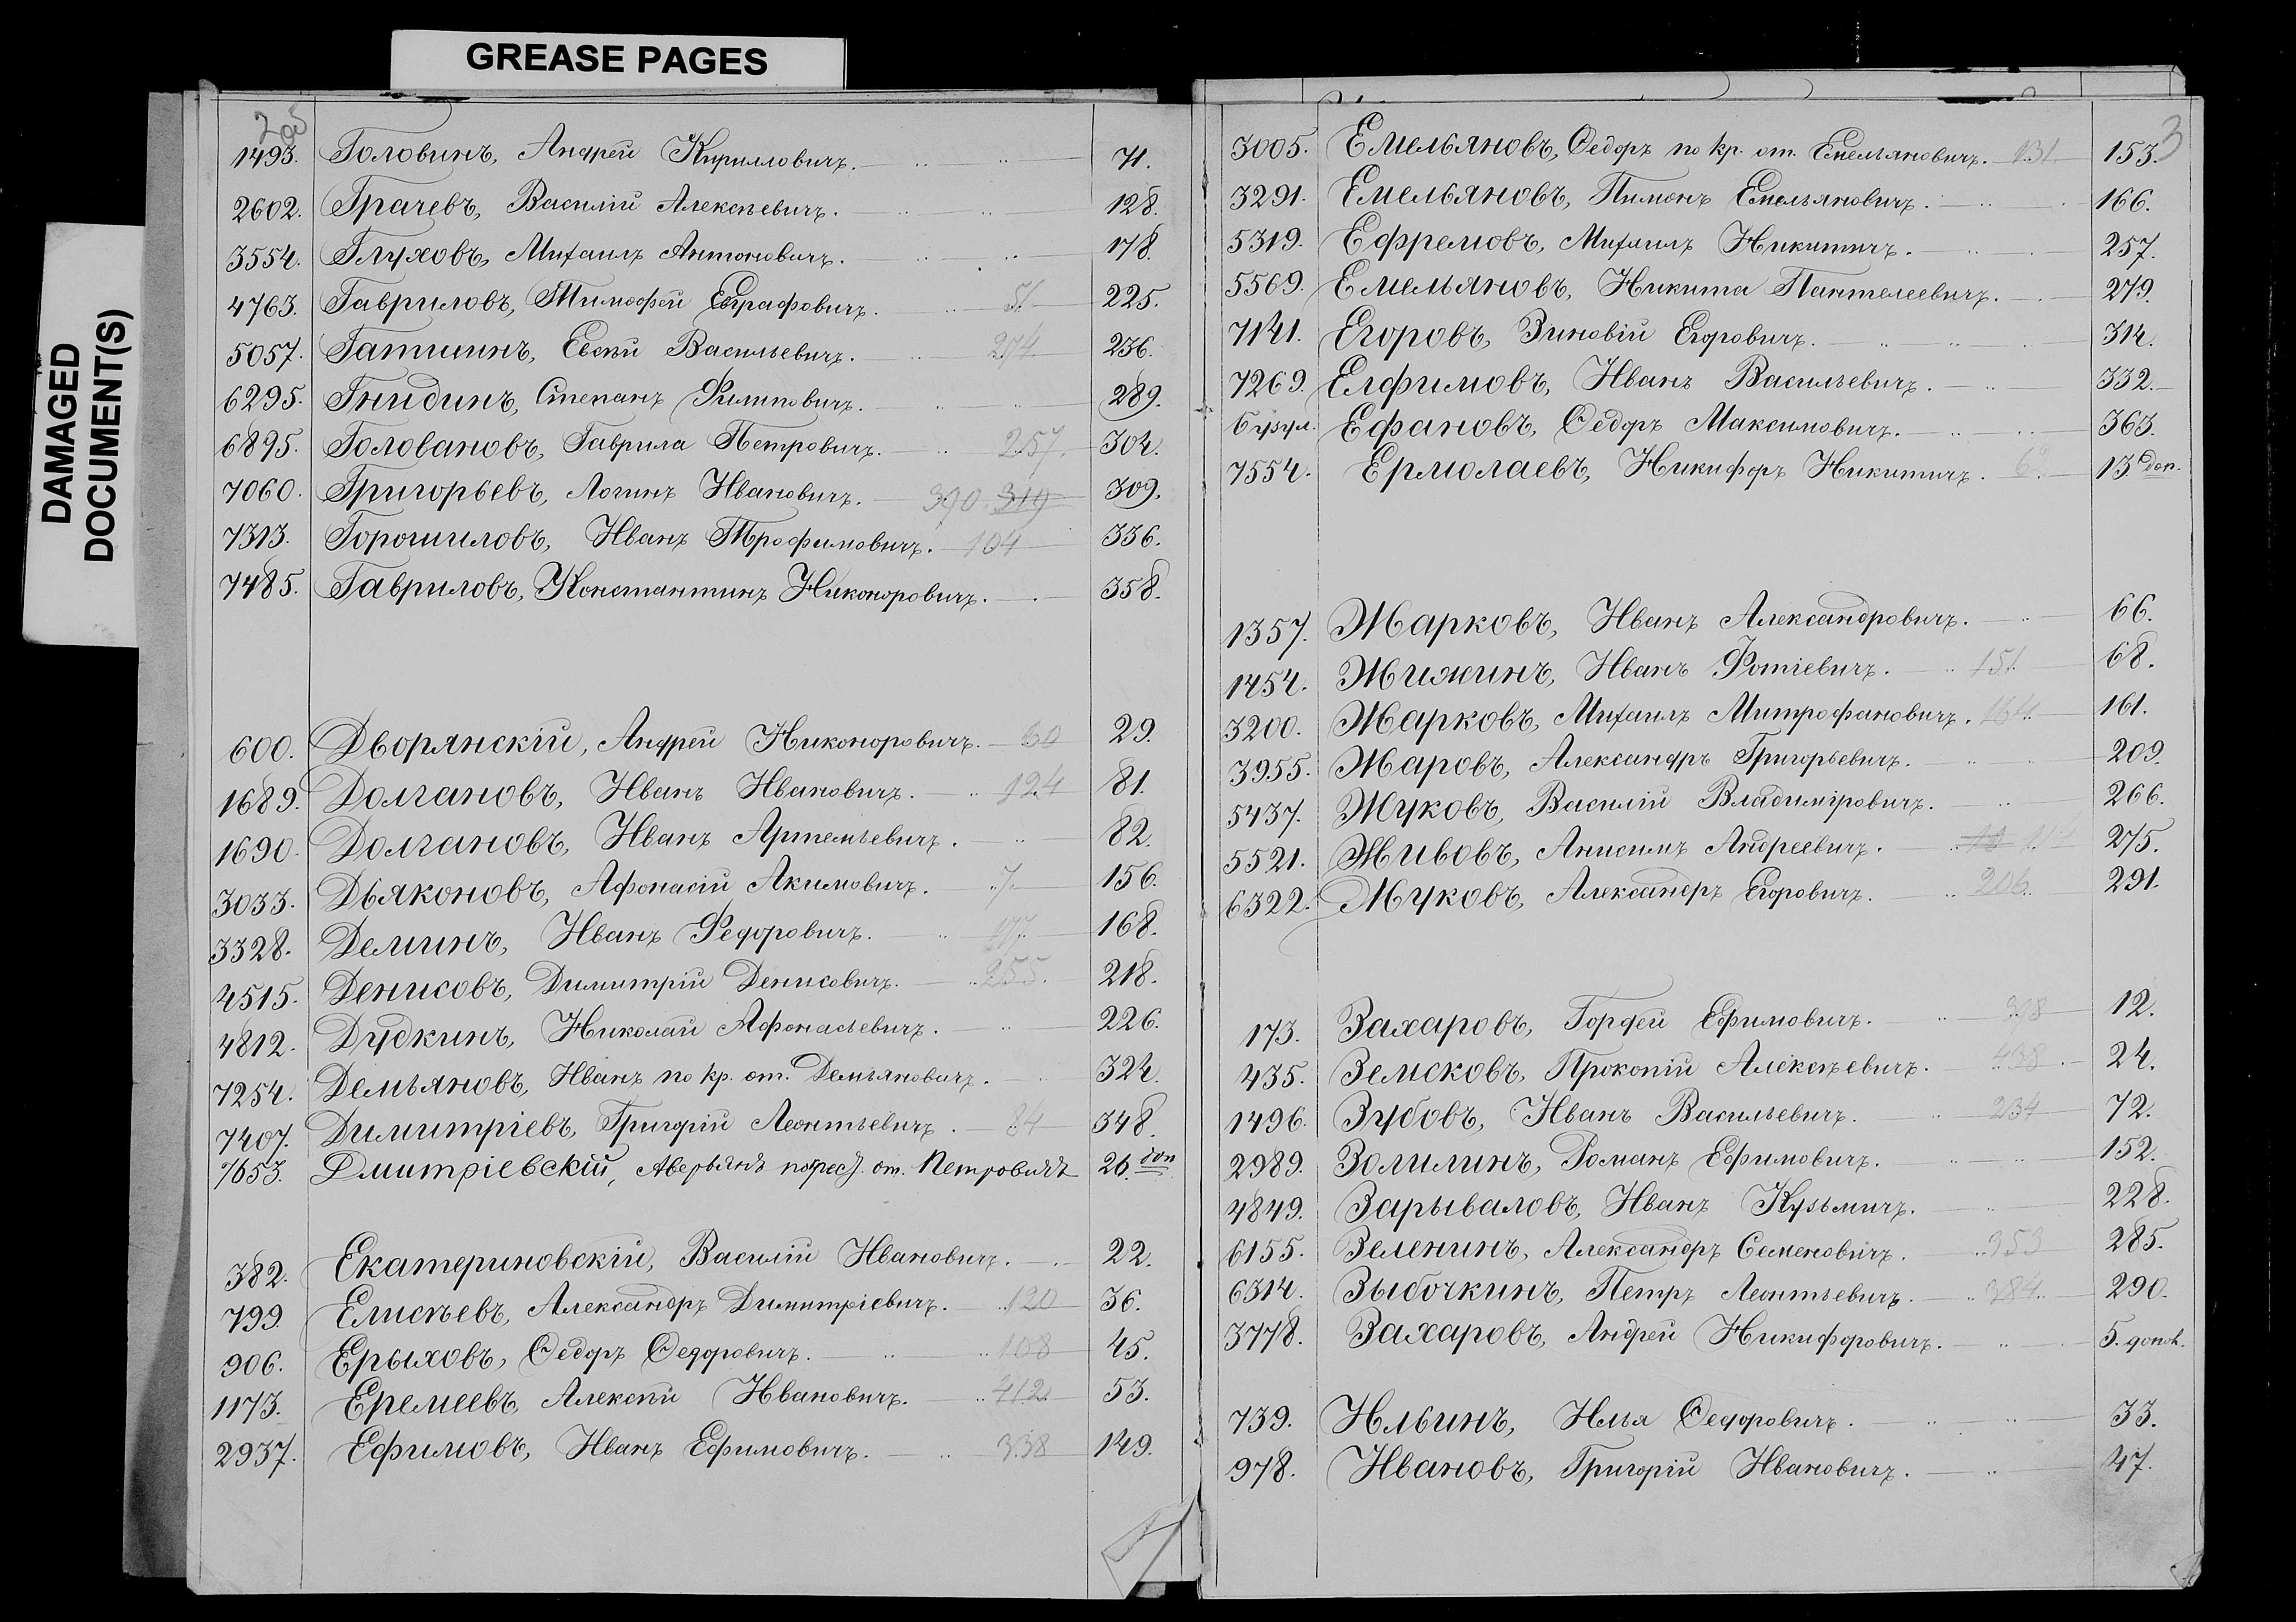 GREASE PAGES
DAMAGED
DOCUMENT(S)
2об
1493. Головинъ, Андрей Кирилловичъ. 71.
2602. Грачевъ, Василій Алексѣевичъ. 128.
3554. Глуховъ, Михаилъ Антоновичъ. 178.
4763. Гавриловъ, Тимофей Евграфовичъ. 51 225.
5057. Гатилинъ, Евсѣй Васильевичъ. 274 236.
6295. Гнидинъ, Степанъ Филиповичъ. 289.
6895. Головановъ, Гаврила Петровичъ. 257. 304.
7060. Григорьевъ, Логинъ Ивановичъ. 390. 319 309.
7313. Горошиловъ, Иванъ Трофимовичъ. 104 336.
7485. Гавриловъ, Константинъ Никоноровичъ. 358.
600. Дворянскій, Андрей Никоноровичъ. 60 29.
1689. Долгановъ, Иванъ Ивановичъ. 124 81.
1690. Долгановъ, Иванъ Артемьевичъ. 82.
3033. Дьяконовъ, Афонасій Акимовичъ. 7 156.
3328. Деминъ, Иванъ Федоровичъ. 168.
4515. Денисовъ, Димитрій Денисовичъ. 255. 218.
4812. Дудкинъ, Николай Афонасьевичъ. 226.
7254. Демьяновъ, Иванъ по кр. от. Демьяновичъ. 324.
7407. Димитріевъ, Григорій Леонтьевичъ. 84 348.
7653. Дмитріевскій, Аверьянъ по крес. от. Петровичъ 26. доп
382. Екатериновскій, Василій Ивановичъ. 22.
799. Елисѣевъ, Александръ Димитріевичъ. 120 36.
906. Ерыховъ, Ѳедоръ Ѳедоровичъ. 108 45.
1173. Еремеевъ, Алексѣй Ивановичъ. 412 53.
2937. Ефимовъ, Иванъ Ефимовичъ. 338 149.
3
3005. Емельяновъ, Ѳедоръ по кр. от. Емельяновичъ. 131 153.
3291. Емельяновъ, Пимонъ Емельяновичъ. 166.
5319. Ефремовъ, Михаилъ Никитичъ. 257.
5569. Емельяновъ, Никита Пантелеевичъ. 279.
7141. Егоровъ, Зиновій Егоровичъ. 314.
7269. Елфимовъ, Иванъ Васильевичъ. 332.
Бузул. Ефановъ, Ѳедоръ Максимовичъ. 363.
7554. Ермолаевъ, Никифоръ Никитичъ. 13 доп.
1357. Жарковъ, Иванъ Александровичъ. 66.
1454. Жижинъ, Иванъ Фотіевичъ. 151. 68.
3200. Жарковъ, Михаилъ Митрофановичъ. 164. 161.
3955. Жаровъ, Александръ Григорьевичъ. 209.
5437. Жуковъ, Василій Владиміровичъ. 266.
5521. Живовъ, Анисимъ Андреевичъ. 275.
6322. Жуковъ, Александръ Егоровичъ. 206. 291.
173. Захаровъ, Гордей Ефимовичъ. 12.
435. Земсковъ, Прокопій Алексѣевичъ. 438 24.
1496. Зубовъ, Иванъ Васильевичъ. 234 72.
2989. Золилинъ, Романъ Ефимовичъ. 152.
4849. Зарываловъ, Иванъ Кузьмичъ. 228.
6155. Зеленинъ, Александръ Семеновичъ. 353 285.
6314. Зыбочкинъ, Петръ Леонтьевичъ. 384. 290.
3778. Захаровъ, Андрей Никифоровичъ. 5. допол.
739. Ильинъ, Илья Ѳедоровичъ. 33.
978. Ивановъ, Григорій Ивановичъ. 47.